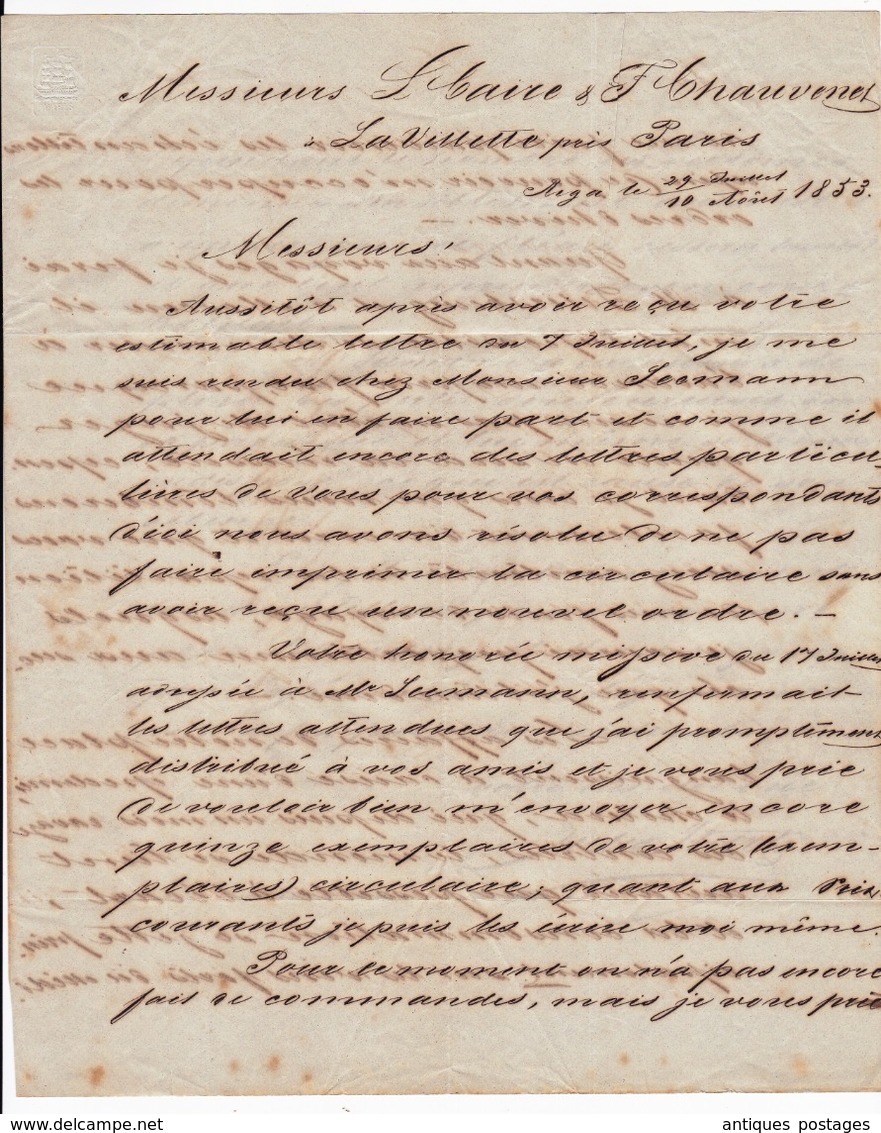 Messieurs L Caire & F Chauvenet
à La Villette près Paris
Riga le 29 Juillet / 10 Aôut 1853.
Messieurs!
Aussitôt après avoir reçu votre
estimable lettre du 7 Juillet, je me
suis rendu chez Monsieur Seemann
pour lui en faire part et comme il
attendait encore des lettres particu-
lières de vous pour vos correspondants
d'ici nous avons résolu de ne pas
faire imprimer la circulaire sans
avoir reçu un nouvel ordre. —
Votre honorée missive du 17 Juillet
adressée à Mr Seemann, renfermait
les lettres attendues que j'ai promptément
distribué à vos amis et je vous prie
de vouloir bien m'envoyer encore
quinze exemplaires de votre (exem-
plaires) circulaire; quant aux Prix
courants je puis les écrire moi même.
Pour le moment on n'a pas encore
fait de commandes, mais je vous prie
antiques postages
www.delcampe.net